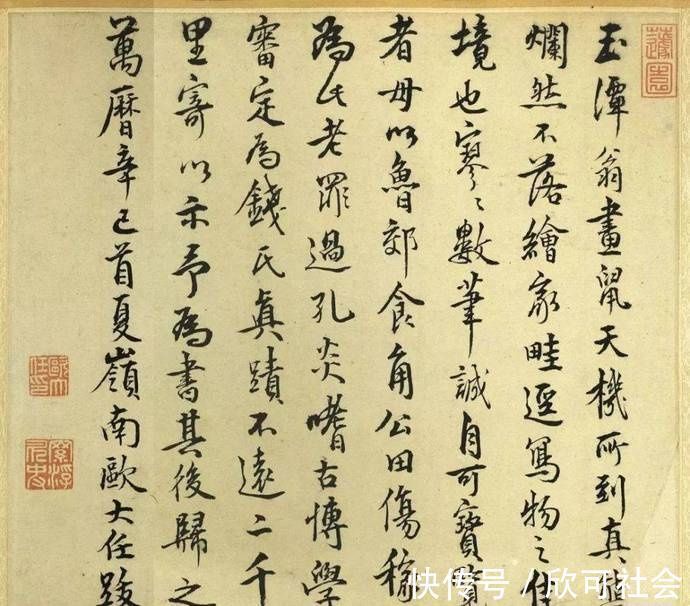 玉潭翁畫鼠天機所到真
爛然不落繪家畦逕寫物之佳
境也寥〻數筆誠自可寶賢
者毋以魯郊食角公田傷穡
為此老罪過孔炎嗜古愽學
審定為錢氏真蹟不遠二千
里寄以示予為書其後歸之
萬曆辛巳首夏嶺南歐大任跋
歐大任印
快传号 / 欣可社会